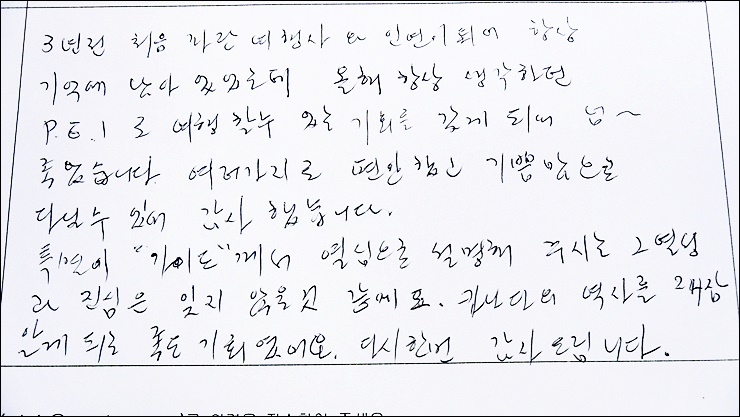 3년전 처음 파란 여행사와 인연이 되어 항상
기억에 남아 있었는데 올해 항상 생각하던
P.E.I 로 여행 할수 있는 기회를 갖게 되어 넘~
좋았습니다. 여러가지로 편안했고 기쁨맘으로
다닐수 있어 감사 했습니다.
특별이 "가이드"께서 열심으로 설명해 주시는 그 열심
과 진심은 잊지 않을것 같에요. 캐나다의 역사를 재삼
알게 되는 좋은 기회 였어요. 다시한번 감사드립니다.